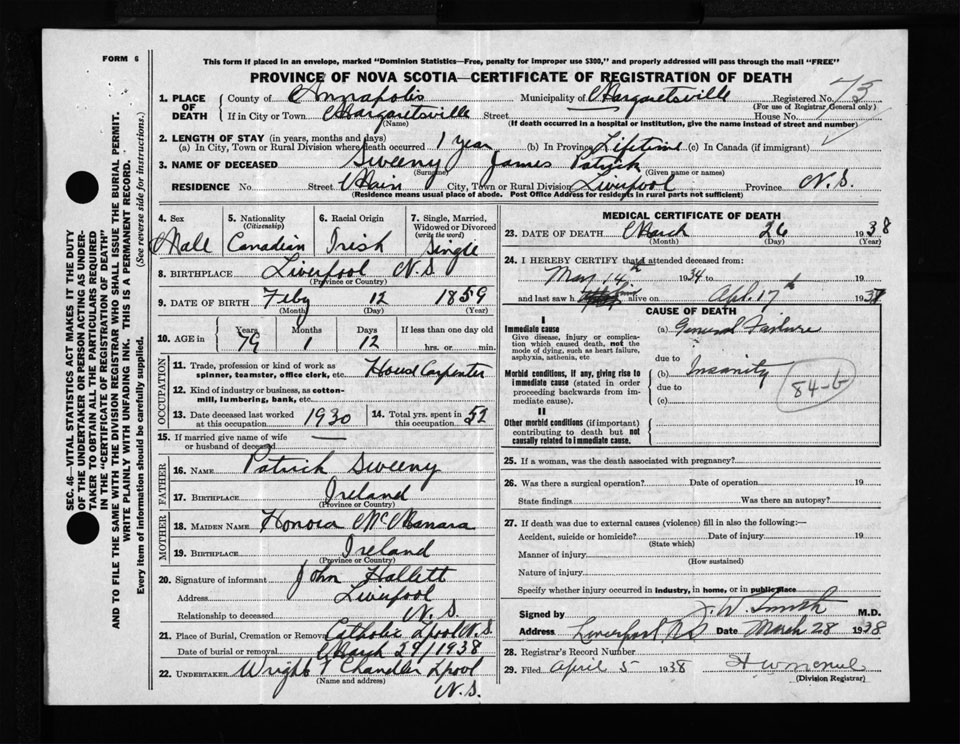 FORM 6
This form if placed in an envelope, marked "Dominion Statistics—Free, penalty for improper use $300," and properly addressed will pass through the mail "FREE"
PROVINCE OF NOVA SCOTIA—CERTIFICATE OF REGISTRATION OF DEATH
1. PLACE OF DEATH
County of Annapolis Municipality of Margaretsville Registered No. 73
(For use of Registrar General only)
If in City or Town Margaretsville Street House No.
(Name) (If death occurred in a hospital or institution, give the name instead of street and number)
2. LENGTH OF STAY (in years, months and days)
(a) In City, Town or Rural Division where death occurred 1 year (b) In Province Lifetime (c) In Canada (if immigrant)
3. NAME OF DECEASED Sweeny James Patrick
(Surname) (Given name or names)
RESIDENCE No. Street Main City, Town or Rural Division Liverpool Province N.S.
(Residence means usual place of abode. Post Office Address for residents in rural parts not sufficient)
4. Sex
Male
5. Nationality
(Citizenship)
Canadian
6. Racial Origin
Irish
7. Single, Married,
Widowed or Divorced
(write the word)
Single
8. BIRTHPLACE Liverpool N.S.
(Province or Country)
9. DATE OF BIRTH Feby 12 1859
(Month) (Day) (Year)
10. AGE in
Years Months Days If less than one day old
79 1 12 hrs. or min.
OCCUPATION
11. Trade, profession or kind of work as
spinner, teamster, office clerk, etc. House Carpenter
12. Kind of industry or business, as cotton-
mill, lumbering, bank, etc.
13. Date deceased last worked
at this occupation 1930
14. Total yrs. spent in
this occupation 52
15. If married give name of wife
or husband of deceased
FATHER
16. NAME Patrick Sweeny
17. BIRTHPLACE Ireland
(Province or Country)
MOTHER
18. MAIDEN NAME Honora McManara
19. BIRTHPLACE Ireland
(Province or Country)
20. Signature of informant John Hallett
Address Liverpool
Relationship to deceased N.S.
21. Place of Burial, Cremation or Removal Catholic Lpool N.S.
Date of burial or removal March 29/1938
22. UNDERTAKER Wright & Chandler Lpool
(Name and address) N.S.
MEDICAL CERTIFICATE OF DEATH
23. DATE OF DEATH March 26 1938
(Month) (Day) (Year)
24. I HEREBY CERTIFY that I attended deceased from:
May 14th 1934 to
and last saw h alive on Apl. 17th 1937
CAUSE OF DEATH
I
Immediate cause
Give disease, injury or complica-
tion which caused death, not the
mode of dying, such as heart failure,
asphyxia, asthenia, etc
(a) General Failure
due to
Morbid conditions, if any, giving rise to
immediate cause (stated in order
proceeding backwards from im-
mediate cause).
(b) Insanity
due to
(c)
84-b
II
Other morbid conditions (if important)
contributing to death but not
causally related to immediate cause.
25. If a woman, was the death associated with pregnancy?
26. Was there a surgical operation? Date of operation 19
State findings Was there an autopsy?
27. If death was due to external causes (violence) fill in also the following:—
Accident, suicide or homicide? Date of injury 19
(State which)
Manner of injury
(How sustained)
Nature of injury
Specify whether injury occurred in industry, in home, or in public place
Signed by J. W. Smith M.D.
Address Liverpool N.S. Date March 28 1938
28. Registrar's Record Number
29. Filed April 5 1938
(Division Registrar)
SEC. 46—VITAL STATISTICS ACT MAKES IT THE DUTY
OF THE UNDERTAKER OR PERSON ACTING AS UNDER-
TAKER TO OBTAIN ALL THE PARTICULARS REQUIRED
IN THE "CERTIFICATE OF REGISTRATION OF DEATH"
AND TO FILE THE SAME WITH THE DIVISION REGISTRAR WHO SHALL ISSUE THE BURIAL PERMIT.
WRITE PLAINLY WITH UNFADING INK. THIS IS A PERMANENT RECORD.
Every item of information should be carefully supplied. (See reverse side for instructions.)